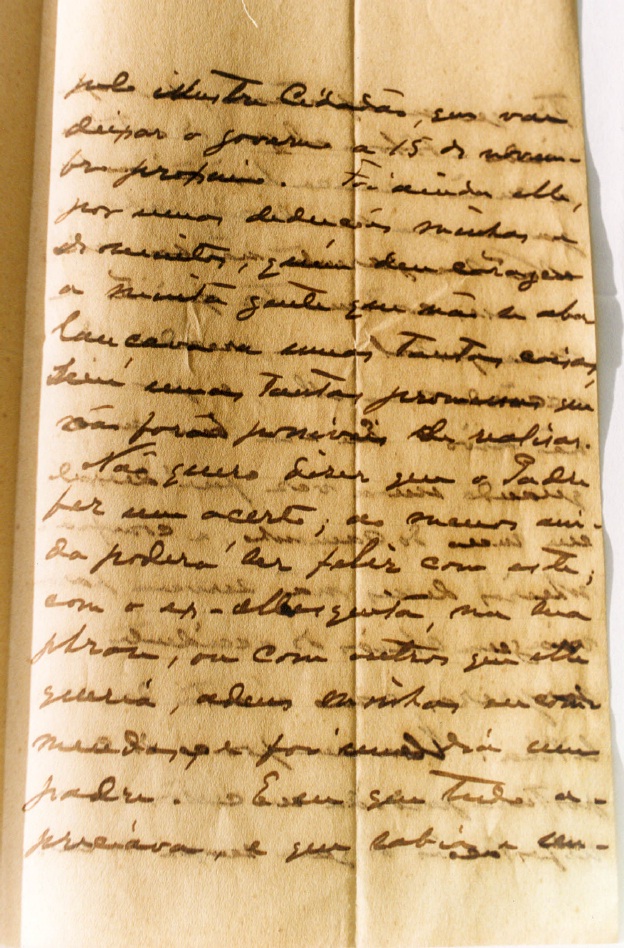 pelo illustre Cidadão, que vai
deixar o governo a 15 de novem-
bro proximo. Foi ainda elle,
por umas deducções minhas e
quem deu coragem
a minha gente que não se aba
umas tantas coisas,
umas tantas promessas que
não forão possiveis de realisar.
Não quero dizer que o Padre
fez um acerto; ao menos ain-
da poderá ser feliz com este;
com o ex- na tua
phrase, ou com outros que elle
queria, adeus minhas encom
mendas, foi um dia um
padre. E eu que tudo a-
preciava, e que sabia